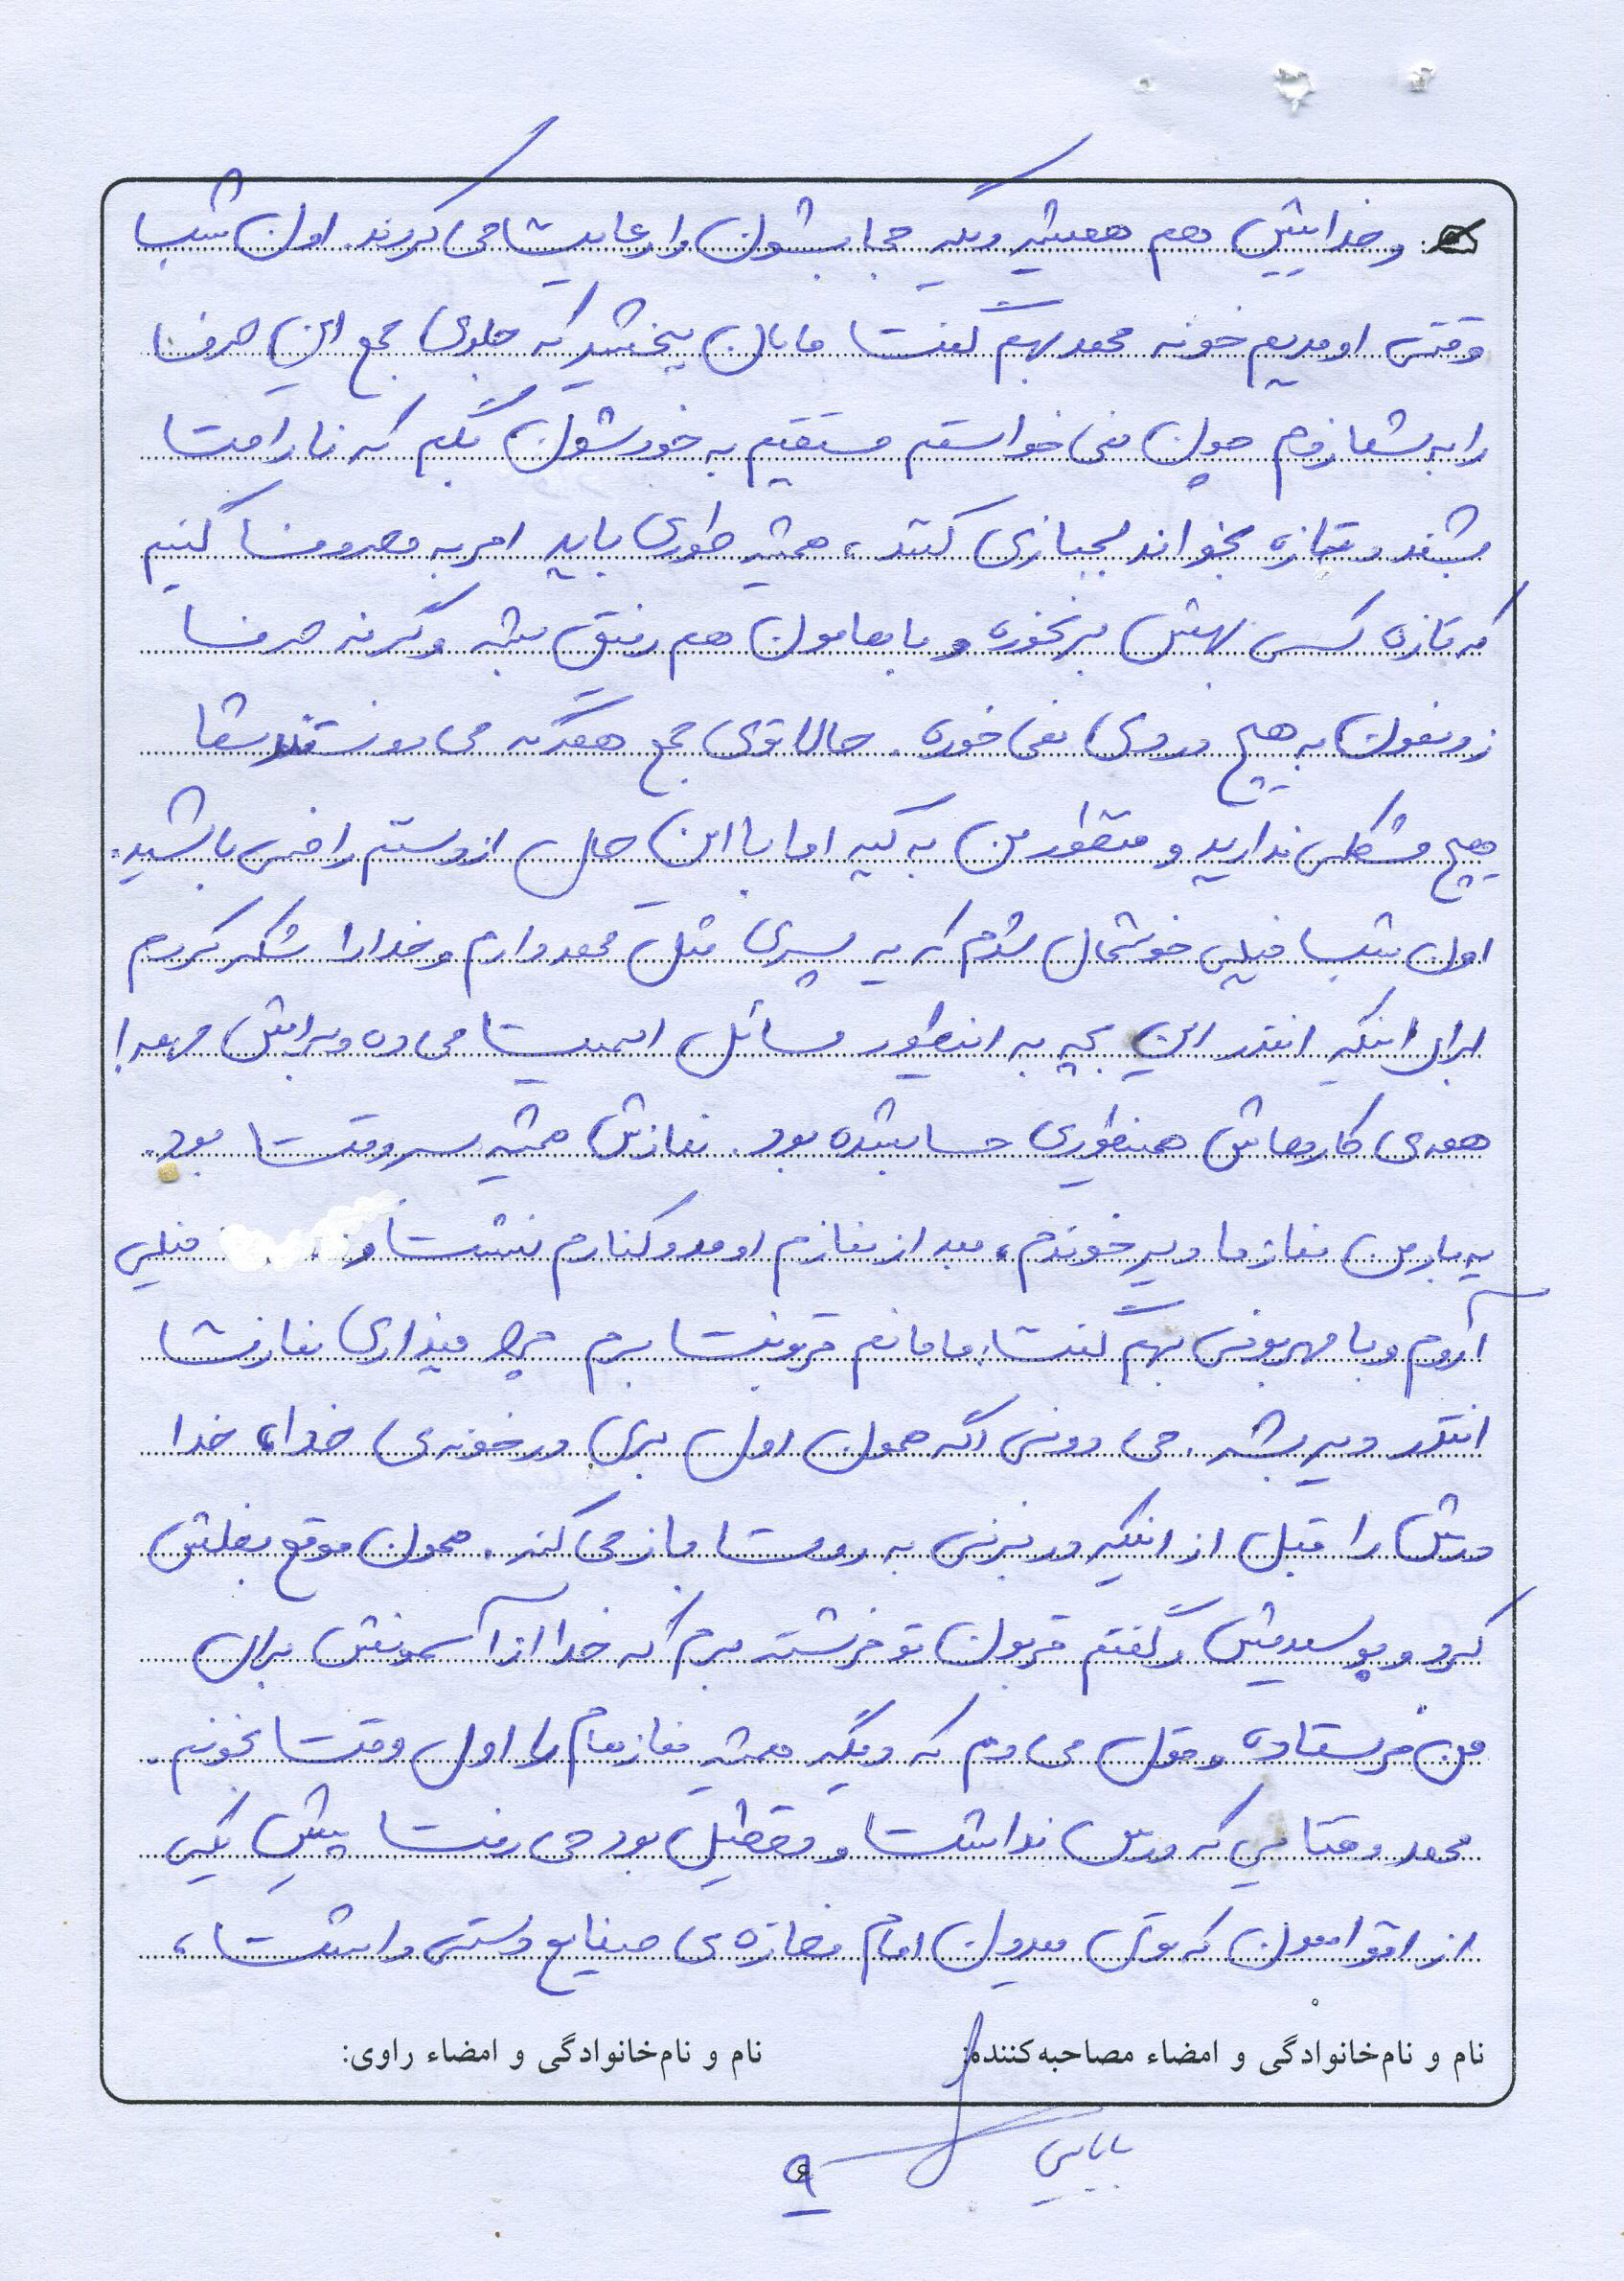 و خدائیش هم همیشه دیگه حجابشون را رعایت می کردند. اون شب
وقتی اومدیم خونه محمد بهم گفت مامان ببخشید که جلوی جمع این حرف
را به شما زدم چون نمی خواستم مستقیم به خودشون بگم که ناراحت
بشند و تازه بخواند لجبازی کنند، همیشه طوری باید امر به معروف کنیم
که تازه کسی بهش برنخوره و باهامون هم رفیق بشه وگرنه حرف
زدنمون به هیچ دردی نمی خوره. حالا توی جمع همگه می دونستند شما
هیچ مشکلی ندارید و منظور من به کیه اما با این حال از دستم راضی باشید.
اون شب خیلی خوشحال شدم که یه پسری مثل محمد دارم و خدا را شکر کردم
برای اینکه انقدر این بچه به اینطور مسائل اهمیت می ده و برایش مهمه!
همه ی کارهاش همینطوری حساب شده بود. نمازش همیشه سر وقت بود.
یه بار من نماز ما دیر خوندم، بعد از نمازم اومد و کنارم نشست و خیلی
آروم و با مهربونی بهم گفت: مامانم قربونت برم چرا میذاری نمازت
انقدر دیر بشه. می دونی اگه همون اول بری در خونه ی خدا، خدا
درش را قبل از اینکه در بزنی به روت باز می کند. همون موقع بغلش
کردو بوسیدمش و گفتم قربون تو فرشته برم که خدا از آسمونش برای
من فرستاده و قول می دم که دیگه همیشه نمازهام را اول وقت بخونم.
محمد وقتایی که درس نداشت و تعطیل بود می رفت پیش یکی
از اقوامون که توی میدون امام مغازه ی صنایع دستی داشت،
نام و نام‌خانوادگی و امضاء مصاحبه‌کننده:
نام و نام‌خانوادگی و امضاء راوی:
بابایی
۹